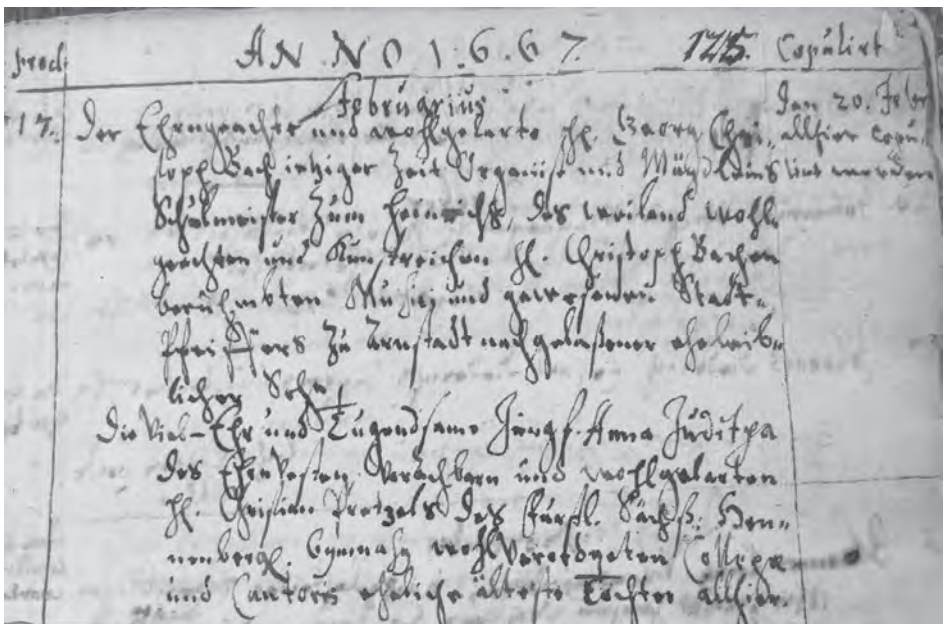 Procl. ANNO 1.6.6.7. 125. Copulirt
Februarius
17. Der Ehrngeachte und wohlgelarte H. Georg Chri- Den 20. Febr
stoph Bach ietziger Zeit Organist und Mägdleins allhier copu-
Schulmeister zum Heinrichs, des weiland wohl- lirt worden
geachten und Kunstreichen H. Christoph Bachen
berühmbten Musici und gewesenen Stadt-
Pfeiffers zu Arnstadt nachgelaßener eheleib-
licher Sohn
Die Viel-Ehr und Tugendsame Jungf. Anna Juditha
des Ehrvesten, Vorachbarn und wohlgelarten
H. Christian Pretzels des Fürstl. Sächß: Hen-
nenbergl. Gymnasy wohlverordneten Collegae
und Cantoris eheliche älteste Tochter allhier.